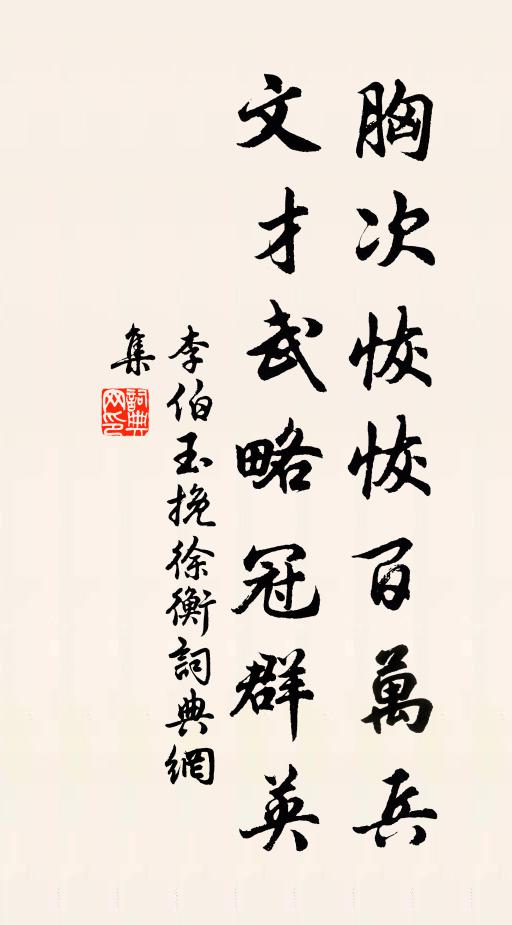 胸次恢恢百萬兵
文才武略冠群英
李伯玉挽徐衡詞典網
集
詞典
网印